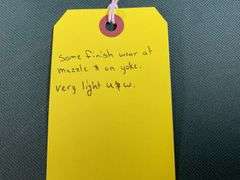 Some finish wear at
muzzle & on yoke.
Very light u&w.